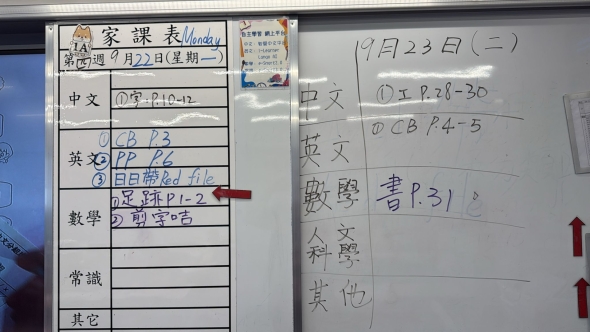 家課表 Monday
1A
第四週 9月22日(星期一)
中文
①字:P.10-12
英文
① CB P.3
② PP P.6
③ 日日帶Red file
數學
①足跡P1-2
② 剪字咭
常識
其它
自主學習 網上平台
9月23日(二)
中文
①工 P.28-30
英文
① CB P.4-5
數學
書P.31
人文科學
其他